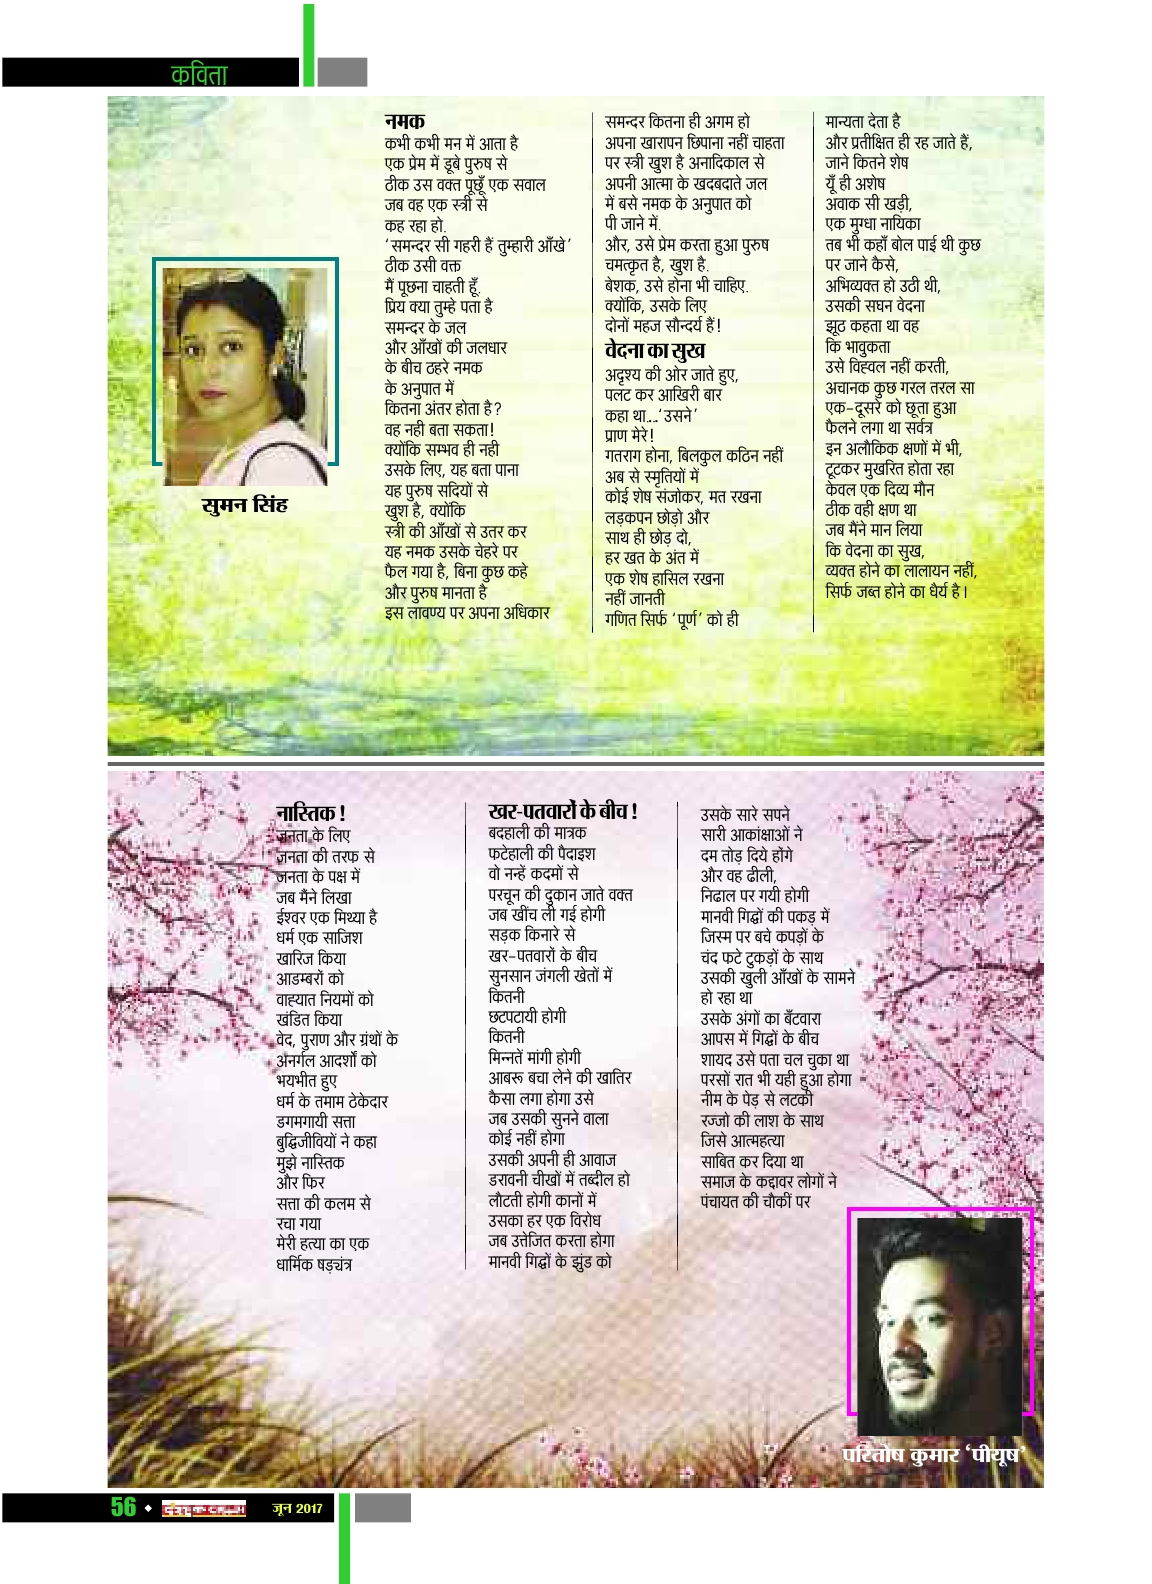 कविता
नमक
कभी कभी मन में आता है
एक प्रेम में डूबे पुरुष से
ठीक उस वक्त पूछूँ एक सवाल
जब वह एक स्त्री से
कह रहा हो.
‘समन्दर सी गहरी हैं तुम्हारी आँखे’
ठीक उसी वक्त
मैं पूछना चाहती हूँ.
प्रिय क्या तुम्हे पता है
समन्दर के जल
और आँखों की जलधार
के बीच ठहरे नमक
के अनुपात में
कितना अंतर होता है?
वह नही बता सकता!
क्योंकि सम्भव ही नही
उसके लिए, यह बता पाना
यह पुरुष सदियों से
खुश है, क्योंकि
स्त्री की आँखों से उतर कर
यह नमक उसके चेहरे पर
फैल गया है, बिना कुछ कहे
और पुरुष मानता है
इस लावण्य पर अपना अधिकार
समन्दर कितना ही अगम हो
अपना खारापन छिपाना नहीं चाहता
पर स्त्री खुश है अनादिकाल से
अपनी आत्मा के खदबदाते जल
में बसे नमक के अनुपात को
पी जाने में.
और, उसे प्रेम करता हुआ पुरुष
चमत्कृत है, खुश है.
बेशक, उसे होना भी चाहिए.
क्योंकि, उसके लिए
दोनों महज सौन्दर्य हैं!
वेदना का सुख
अदृश्य की ओर जाते हुए,
पलट कर आखिरी बार
कहा था...‘उसने’
प्राण मेरे!
गतराग होना, बिलकुल कठिन नहीं
अब से स्मृतियों में
कोई शेष संजोकर, मत रखना
लड़कपन छोड़ो और
साथ ही छोड़ दो,
हर खत के अंत में
एक शेष हासिल रखना
नहीं जानती
गणित सिर्फ ‘पूर्ण’ को ही
मान्यता देता है
और प्रतीक्षित ही रह जाते हैं,
जाने कितने शेष
यूँ ही अशेष
अवाक सी खड़ी,
एक मुग्धा नायिका
तब भी कहाँ बोल पाई थी कुछ
पर जाने कैसे,
अभिव्यक्त हो उठी थी,
उसकी सघन वेदना
झूठ कहता था वह
कि भावुकता
उसे विह्वल नहीं करती,
अचानक कुछ गरल तरल सा
एक-दूसरे को छूता हुआ
फैलने लगा था सर्वत्र
इन अलौकिक क्षणों में भी,
टूटकर मुखरित होता रहा
केवल एक दिव्य मौन
ठीक वही क्षण था
जब मैंने मान लिया
कि वेदना का सुख,
व्यक्त होने का लालायन नहीं,
सिर्फ जब्त होने का धैर्य है।
सुमन सिंह
नास्तिक!
जनता के लिए
जनता की तरफ से
जनता के पक्ष में
जब मैंने लिखा
ईश्वर एक मिथ्या है
धर्म एक साजिश
खारिज किया
आडम्बरों को
वाह्यात नियमों को
खंडित किया
वेद, पुराण और ग्रंथों के
अनर्गल आदर्शों को
भयभीत हुए
धर्म के तमाम ठेकेदार
डगमगायी सत्ता
बुद्धिजीवियों ने कहा
मुझे नास्तिक
और फिर
सत्ता की कलम से
रचा गया
मेरी हत्या का एक
धार्मिक षड़्यंत्र
खर-पतवारों के बीच!
बदहाली की मात्रक
फटेहाली की पैदाइश
वो नन्हें कदमों से
परचून की दुकान जाते वक्त
जब खींच ली गई होगी
सड़क किनारे से
खर-पतवारों के बीच
सुनसान जंगली खेतों में
कितनी
छटपटायी होगी
कितनी
मिन्नतें मांगी होगी
आबरू बचा लेने की खातिर
कैसा लगा होगा उसे
जब उसकी सुनने वाला
कोई नहीं होगा
उसकी अपनी ही आवाज
डरावनी चीखों में तब्दील हो
लौटती होगी कानों में
उसका हर एक विरोध
जब उत्तेजित करता होगा
मानवी गिद्धों के झुंड को
उसके सारे सपने
सारी आकांक्षाओं ने
दम तोड़ दिये होंगे
और वह ढीली,
निढाल पर गयी होगी
मानवी गिद्धों की पकड़ में
जिस्म पर बचे कपड़ों के
चंद फटे टुकड़ों के साथ
उसकी खुली आँखों के सामने
हो रहा था
उसके अंगों का बँटवारा
आपस में गिद्धों के बीच
शायद उसे पता चल चुका था
परसों रात भी यही हुआ होगा
नीम के पेड़ से लटकी
रज्जो की लाश के साथ
जिसे आत्महत्या
साबित कर दिया था
समाज के कद्दावर लोगों ने
पंचायत की चौकीं पर
परितोष कुमार ‘पीयूष’
56
जून 2017